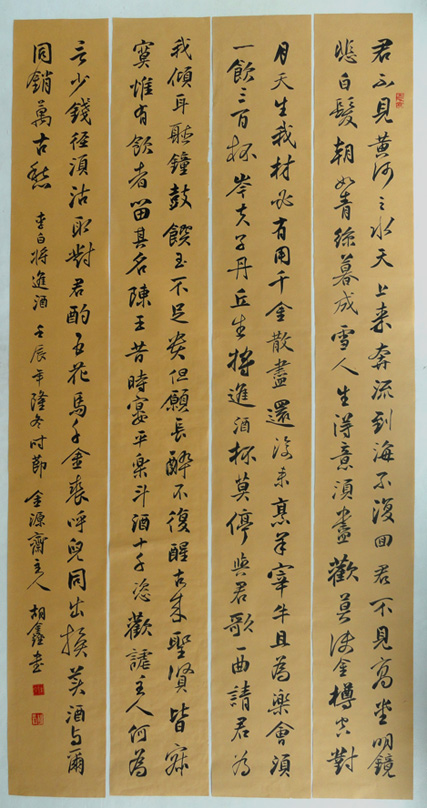 君不見黃河之水天上来奔流到海不復回君不見高堂明鏡
悲白髮朝如青絲暮成雪人生得意須盡歡莫使金樽空對
月天生我材必有用千金散盡還復来烹羊宰牛且為樂會須
一飲三百杯岑夫子丹丘生將進酒杯莫停與君歌一曲請君為
我傾耳聽鐘鼓饌玉不足貴但願長醉不復醒古来聖賢皆寂
寞惟有飲者留其名陳王昔時宴平樂斗酒十千恣歡謔主人何為
言少錢徑須沽取對君酌五花馬千金裘呼兒同出換美酒与爾
同銷萬古愁 李白將進酒 壬辰年隆冬时節 金源齋主人 胡鑫書